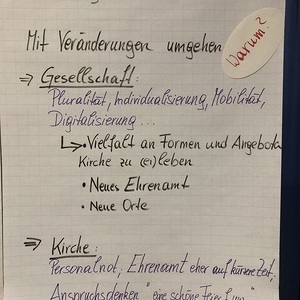 Mit Veränderungen umgehen
Warum?
⇒ Gesellschaft:
Pluralität, Individualisierung, Mobilität,
Digitalisierung...
↳ Vielfalt an Formen und Angeboten
Kirche zu (er)leben
• Neues Ehrenamt
• Neue Orte
⇒ Kirche:
Personalnot, Ehrenamt eher auf kürzere Zeit,
Anspruchsdenken "eine schöne Feier